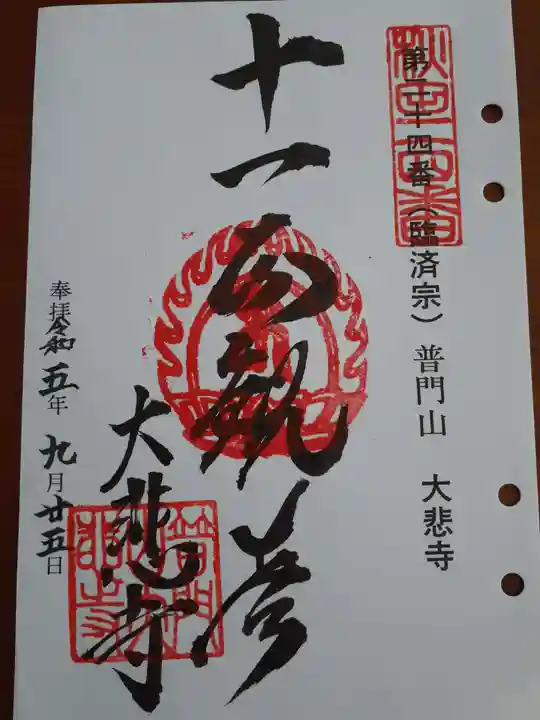 第二十四番（臨済宗）普門山 大悲寺
十一面観音
大悲寺
奉拝令和五年九月廿五日